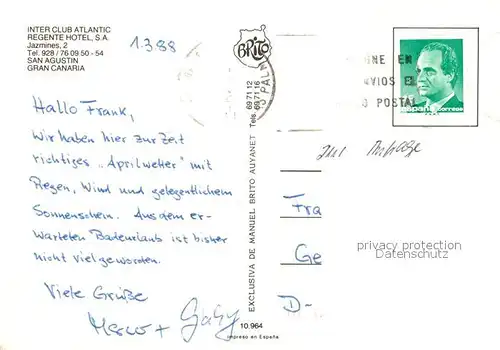 INTER CLUB ATLANTIC
REGENTE HOTEL, S.A.
Jazmines, 2
Tel. 928 / 76 09 50 - 54
SAN AGUSTIN
GRAN CANARIA
1.3.88
Hallo Frank,
wir haben hier zur Zeit
richtiges „Aprilwetter" mit
Regen, Wind und gelegentlichem
Sonnenschein. Aus dem er-
warteten Badeurlaub ist bisher
nicht viel geworden.
Viele Grüße
Marco + Gaby
BRITO
Tels. 69 71 12
69 71 16
EXCLUSIVA DE MANUEL BRITO AUYANET
10.964
Impreso en España
GNE EN
VIOS EL
O POSTAL
PALM
España correos
zur
Fra
Ge
D-
privacy protection
Datenschutz